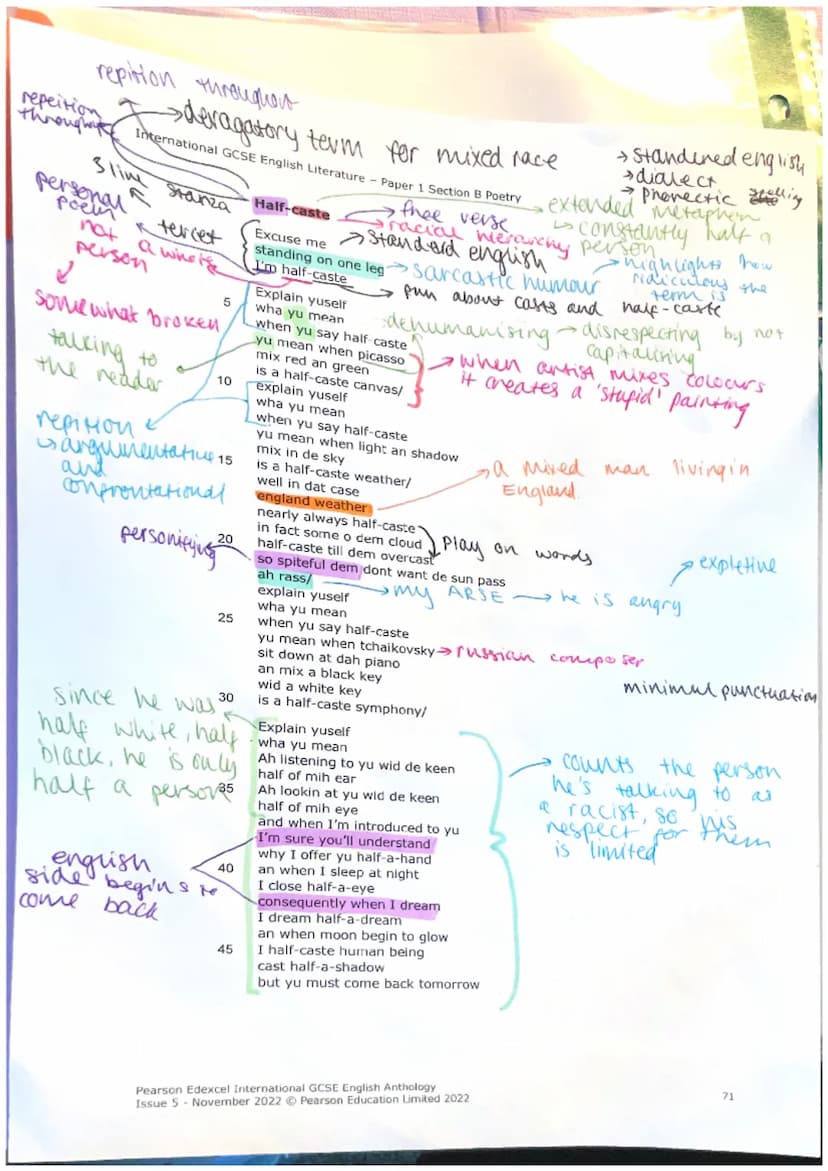 repition throughout
repeition
throughout
→deragatory term for mixed race
International GCSE English Literature – Paper 1 Section B Poetry
→ Standened english
→ dialect
→ Phonectic spelling
slim stanza
personal
poem
tercet
not a whole
person
somewhat broken
Half-caste
→ free verse
→ racial hierarchy
→ extended metaphor
↳ constantly half a
person
Excuse me
→ Standerd english
standing on one leg
→ sarcastic humour
→ highlights how
ridiculous the
term is
I'm half-caste
→ pun about casts and half-caste
5
Explain yuself
wha yu mean
when yu say half-caste
dehumanising → disrespecting by not
capitalising
talking to
the reader
yu mean when picasso
mix red an green
is a half-caste canvas/
→ when artist mixes colours
it creates a 'stupid' painting
10
explain yuself
wha yu mean
when yu say half-caste
repition
↳ argumentative
and
confrontational
yu mean when light an shadow
15
mix in de sky
is a half-caste weather/
well in dat case
england weather
a mixed man living in
England.
nearly always half-caste
in fact some o dem cloud
20
half-caste till dem overcast
Play on words
personifying
so spiteful dem dont want de sun pass
ah rass/
→ my ARSE → he is angry
expletive
explain yuself
wha yu mean
25
when yu say half-caste
yu mean when tchaikovsky
→ russian composer
sit down at dah piano
an mix a black key
wid a white key
30
is a half-caste symphony/
minimul punctuation
since he was
half white, half
black, he is only
half a person
Explain yuself
wha yu mean
Ah listening to yu wid de keen
half of mih ear
35
Ah lookin at yu wid de keen
half of mih eye
and when I'm introduced to yu
I'm sure you'll understand
why I offer yu half-a-hand
40
an when I sleep at night
I close half-a-eye
consequently when I dream
I dream half-a-dream
an when moon begin to glow
45
I half-caste human being
cast half-a-shadow
but yu must come back tomorrow
→ counts the person
he's talking to as
a racist, so his
respect for them
is limited
english
side begins to
come back
Pearson Edexcel International GCSE English Anthology
Issue 5 - November 2022 © Pearson Education Limited 2022
71